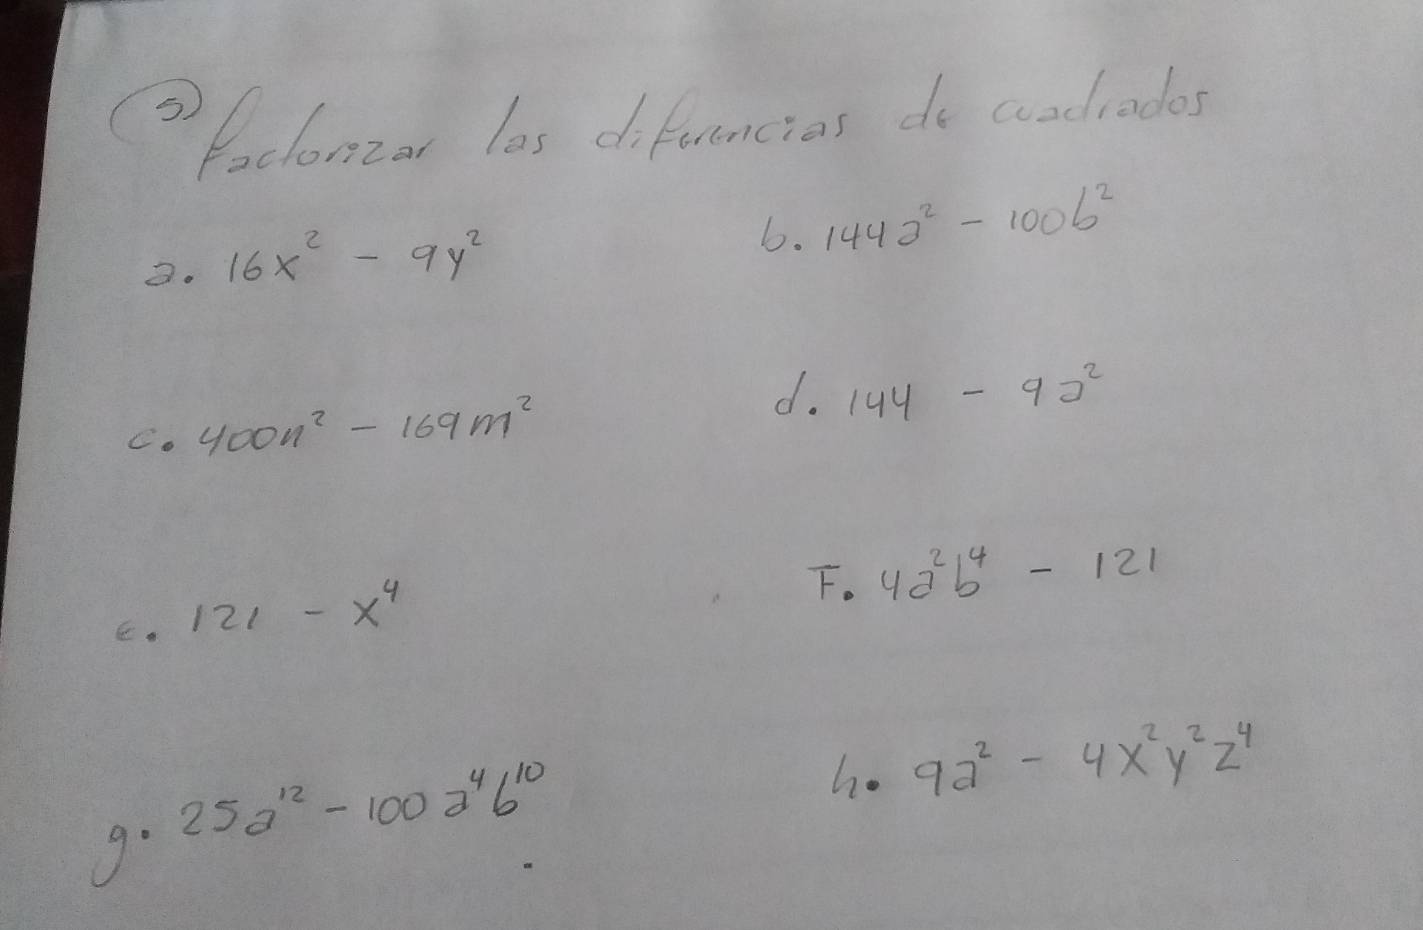 5) Factorizar las diferencias de cuadrados
a. 16x² - 9y²
b. 144a² - 100b²
c. 400n² - 169m²
d. 144 - 9a²
e. 121 - x⁴
F. 4a²b⁴ - 121
g. 25a¹² - 100a⁴b¹⁰
h. 9a² - 4x²y²z⁴